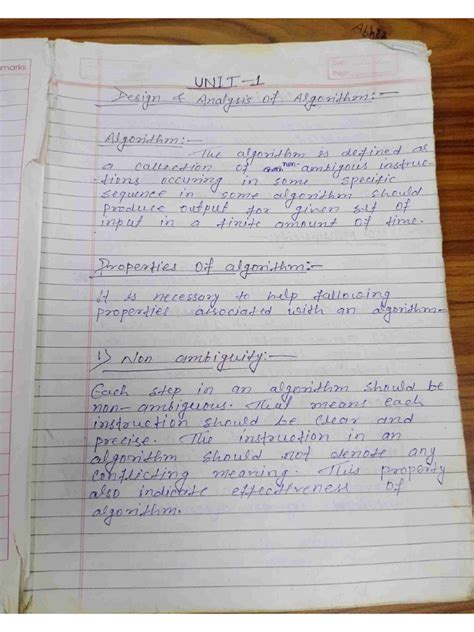 UNIT-1
Design & Analysis of Algorithm:-
Algorithm:-
The algorithm is defined as
a collection of non-ambigous instruc-
tions occuring in some specific
sequence in some algorithm should
produce output for given set of
input in a finite amount of time.
Properties Of algorithm:-
It is necessary to help following
properties associated with an algorithm-
1) Non ambiguity:-
Each step in an algorithm should be
non-ambiguous. That means each
instruction should be clear and
precise. The instruction in an
algorithm should not denote any
conflicting meaning. This property
also indicate effectiveness of
algorithm.